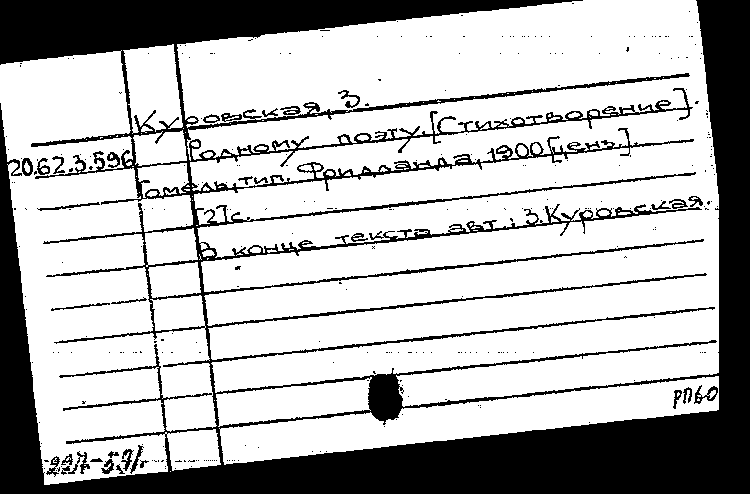 Куровская, З.
20.62.3.596 Родному поэту. [Стихотворение].
Гомель, тип. Фридланда, 1900 [ценз.].
[2] с.
В конце текста авт.: З. Куровская.
РПБО